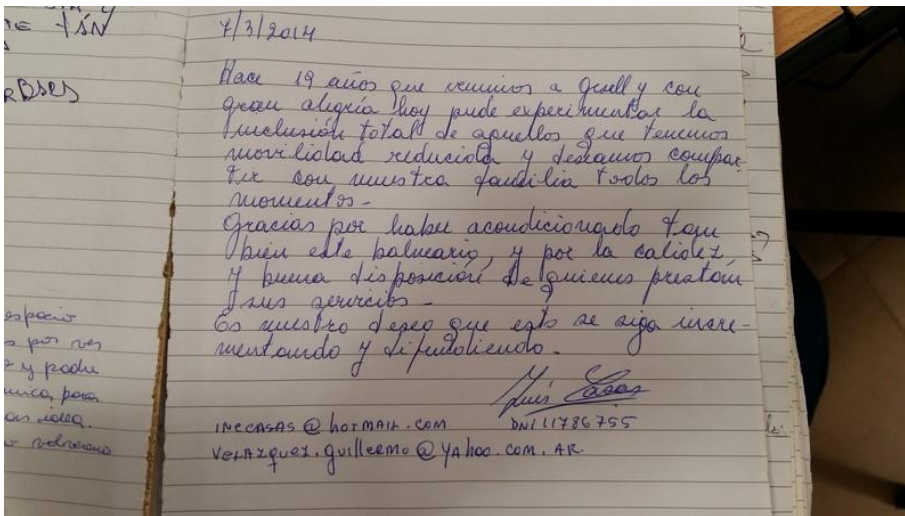 TE TÁN
RBSES
7/3/2014
Hace 19 años que venimos a Gesell y con
gran alegría hoy pude experimentar la
inclusión total de aquellos que tenemos
movilidad reducida y deseamos compar
tir con nuestra familia todos los
momentos-
Gracias por haber acondicionado tan
bien este balneario, y por la calidez
y buena disposición de quienes prestan
sus servicios-
Es nuestro deseo que esto se siga incre-
mentando y difundiendo.
Inés Casas
DNI 11786755
INECASAS@hotmail.com
VELAZQUEZ.guillermo@yahoo.com.AR.
espacio
s por ver
y poder
unica, para
idea.